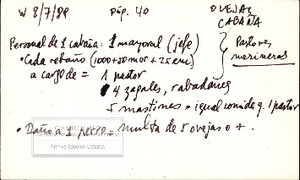 W 8/7/89 Pág. 40 OVEJAS
CABAÑA
Personal de 1 cabaña: 1 mayoral (jefe)
Pastores
marineros
• Cada rebaño (1000+50 mor + 25 em)
a cargo de = 1 pastor
4 zagales, rabadanes
5 mastines = igual comida q. 1 pastor
• Daño a 1 perro = multa de 5 ovejas o +.
Archivo Eduardo